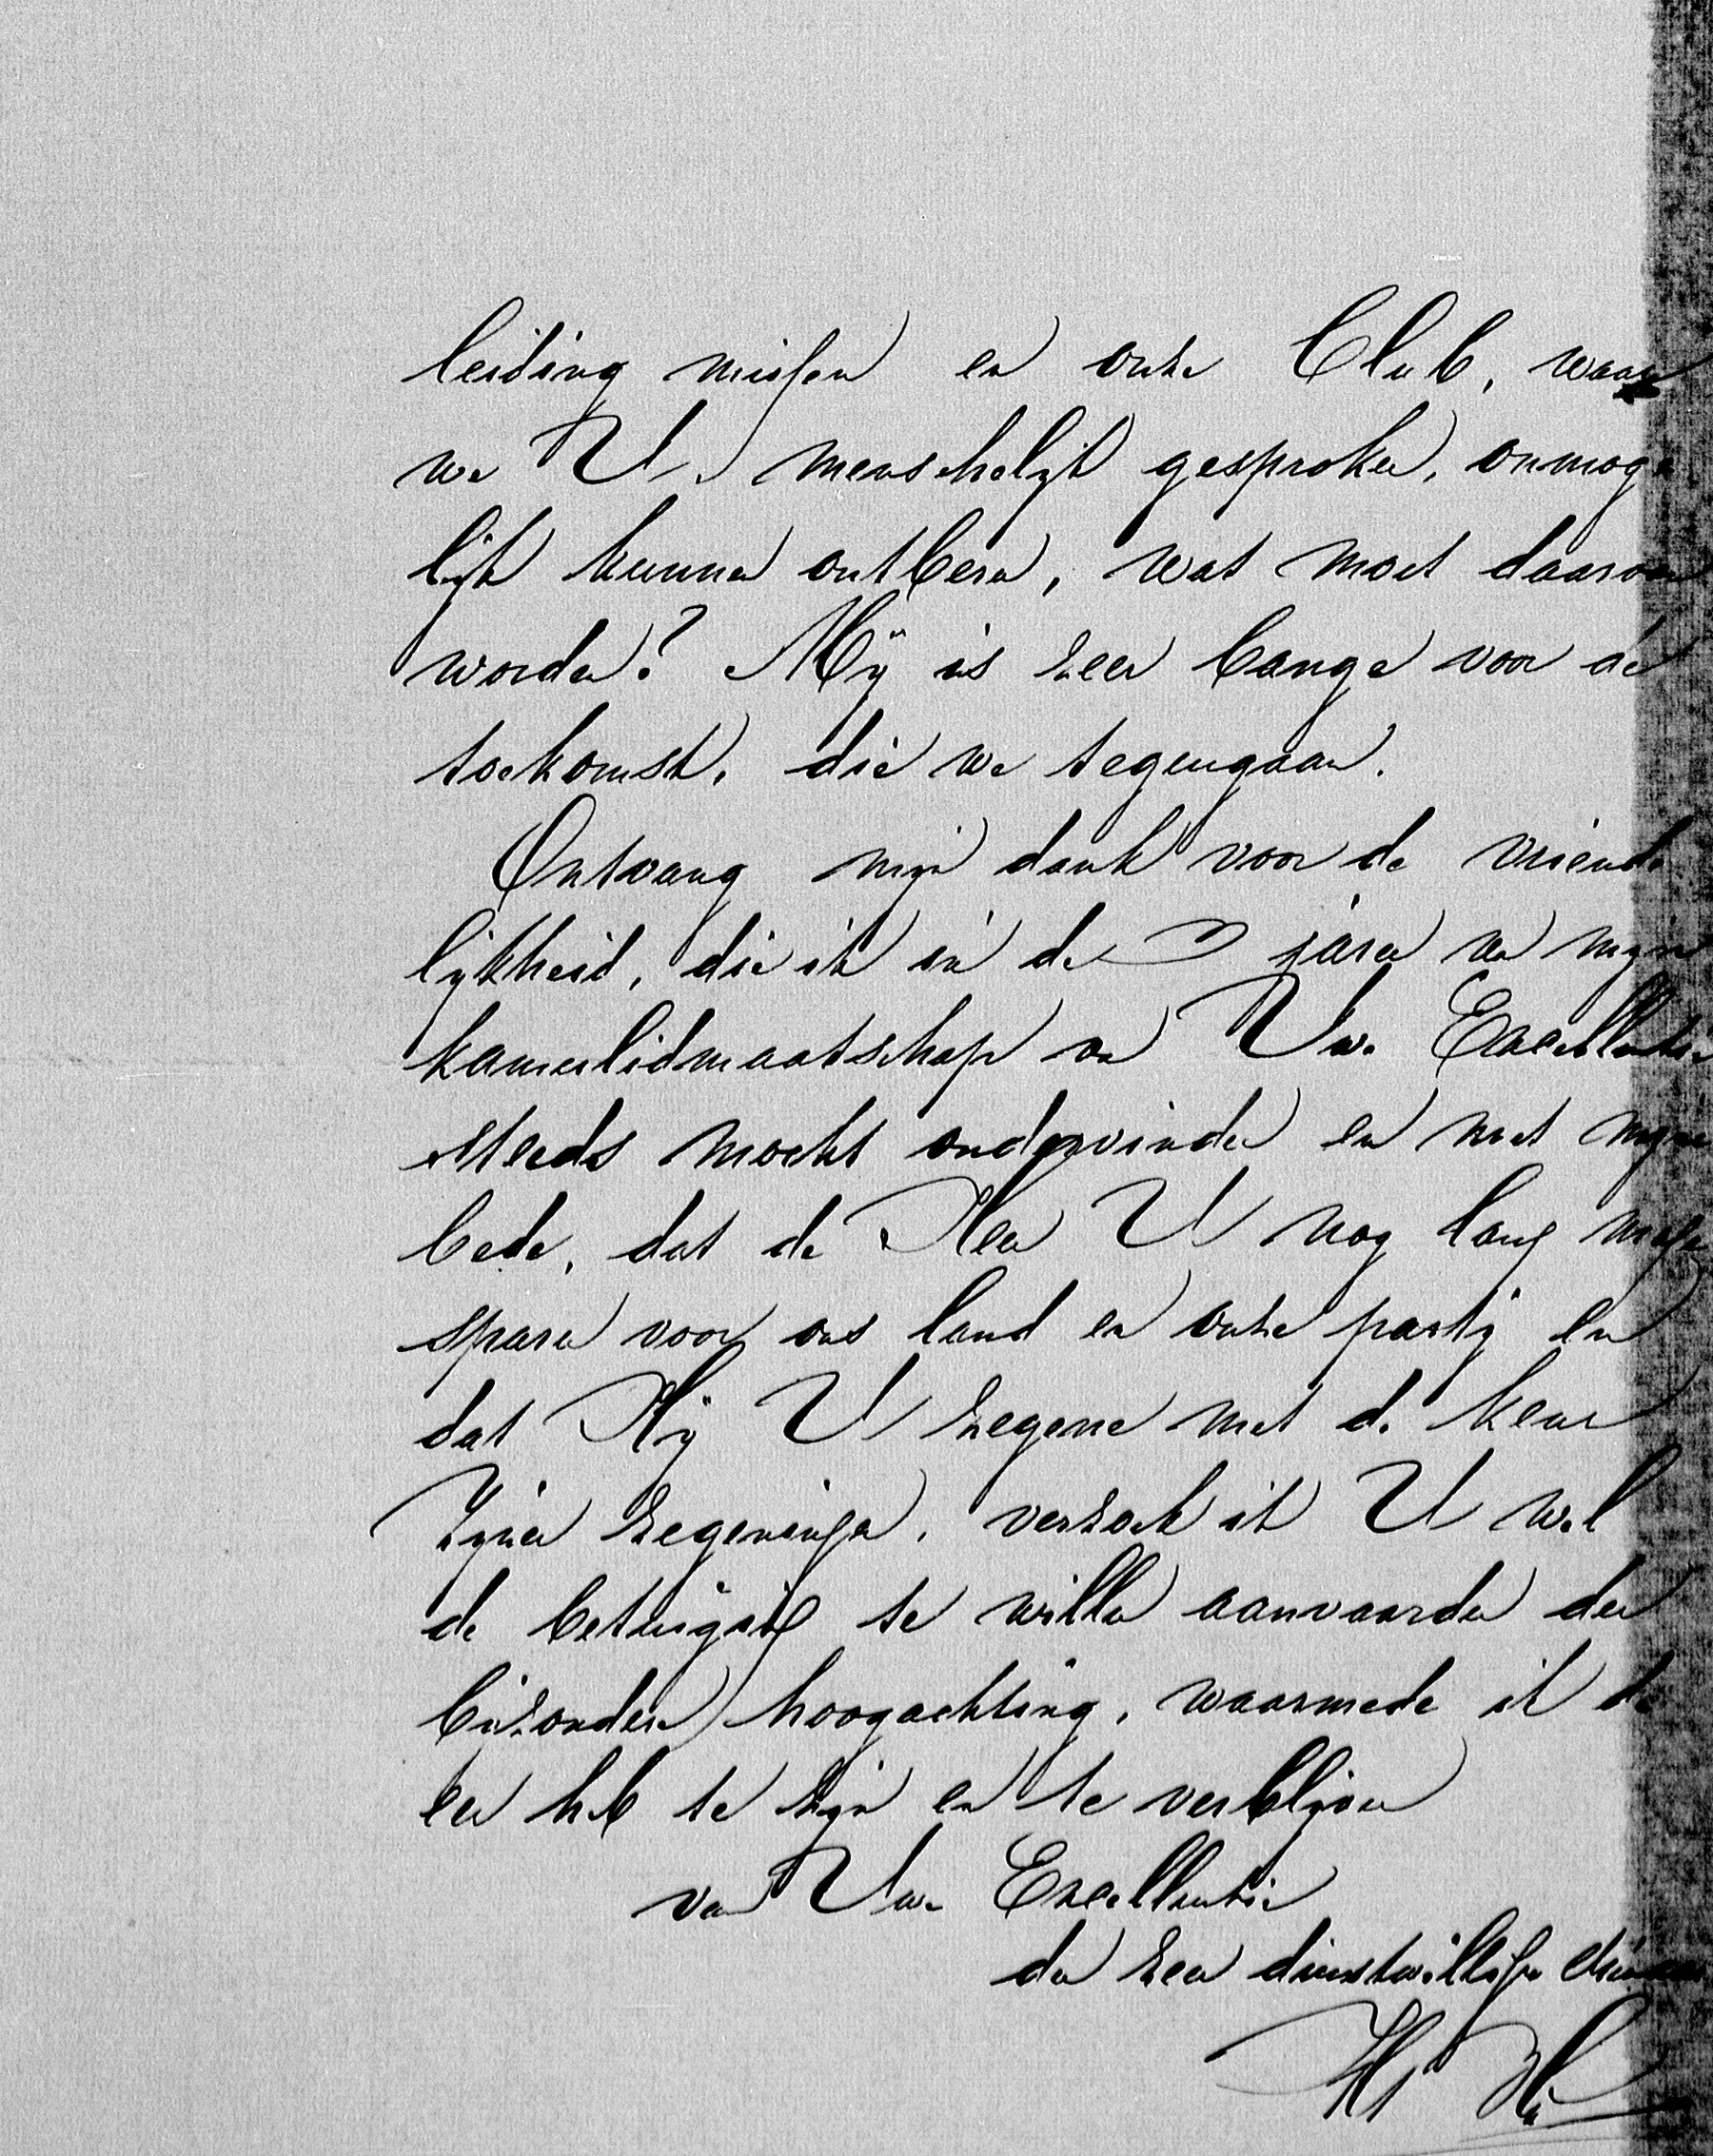 leiding missen en onze Club, waar
we U, menschelijk gesproken, onmoge
lijk kunnen ontberen, wat moet daarvan
worden? Mij is zeer bange voor de
toekomst, die we tegengaan.
Ontvang mijn dank voor de vriende
lijkheid, die ik in de 3 jaren van mijn
kamerlidmaatschap van Uw Excellentie
steeds mocht ondervinden en met mijne
bede, dat de Heer U nog lang moge
sparen voor ons land en onze partij en
dat Hij U zegene met de keur
Zijner zegeningen, verzoek ik U wel
de betuiging te willen aanvaarden der
bijzondere hoogachting, waarmede ik de
eer heb te zijn en te verblijven
van Uwe Excellentie
de zeer dienstwillige dienaar